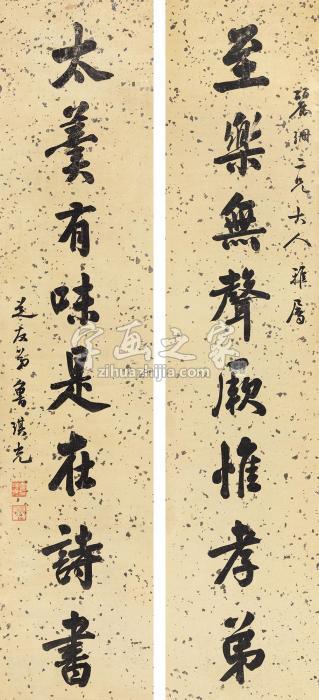 麗珊二兄大人雅屬
至樂無聲厥惟孝弟
太羹有味是在詩書
魯琪光
字画之家
zihuazhijia.com